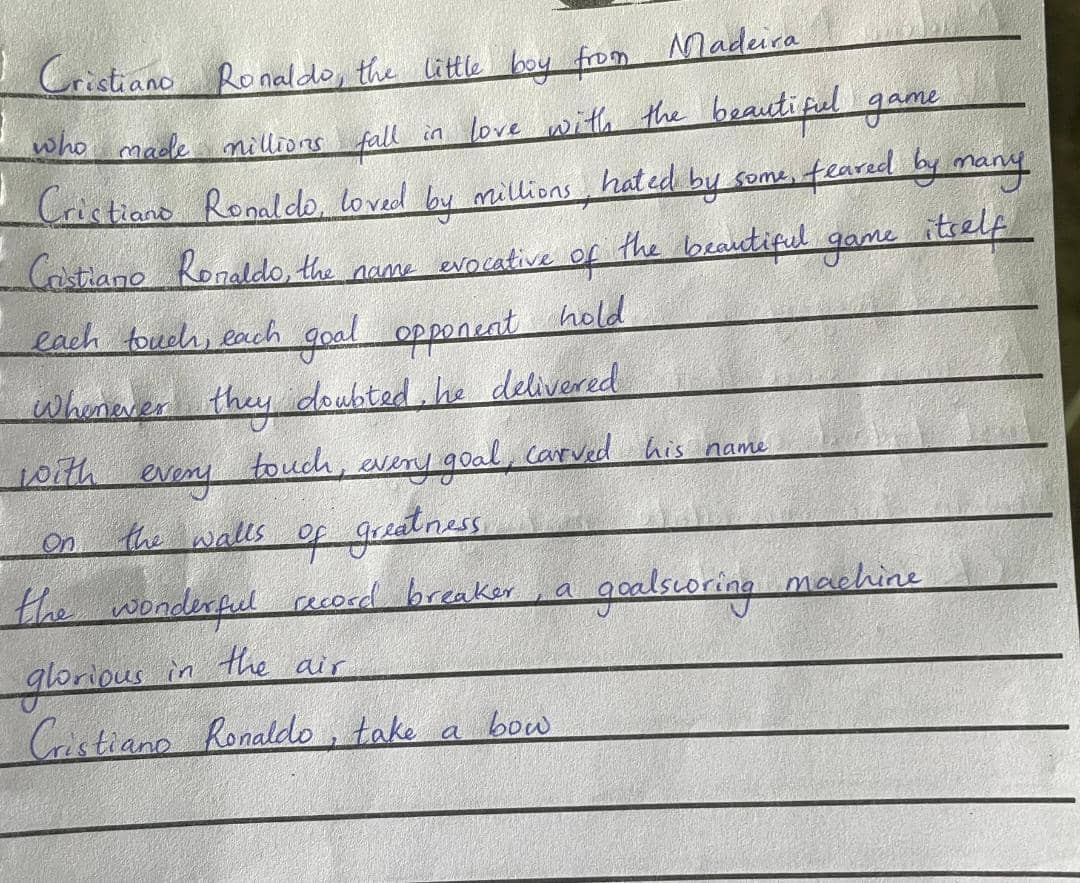 Cristiano Ronaldo, the little boy from Madeira
who made millions fall in love with the beautiful game
Cristiano Ronaldo, loved by millions, hated by some, feared by many
Cristiano Ronaldo, the name evocative of the beautiful game itself
each touch, each goal opponent hold
Whenever they doubted, he delivered
with every touch, every goal, carved his name
On the walls of greatness
the wonderful record breaker, a goalscoring machine
glorious in the air
Cristiano Ronaldo, take a bow